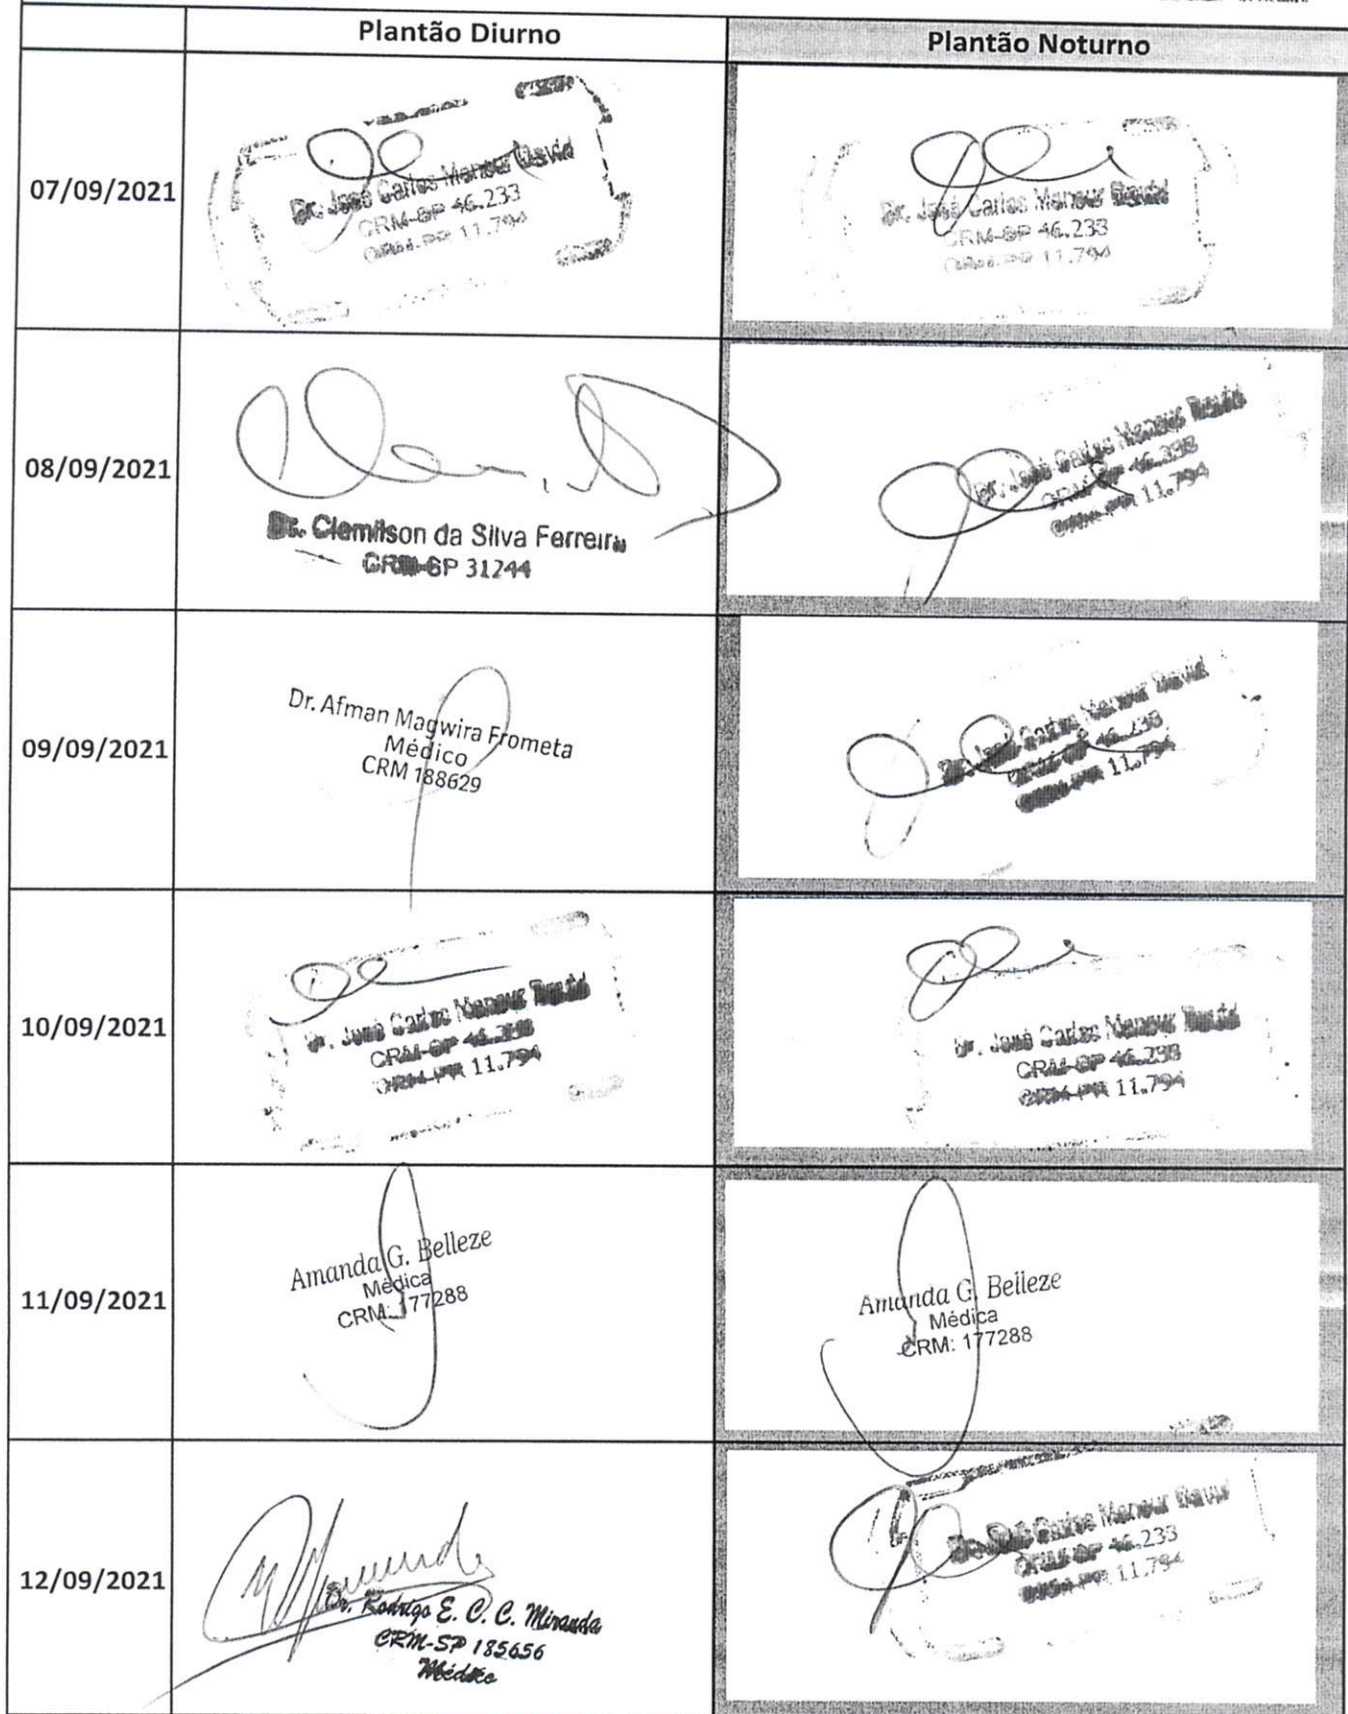 Plantão Diurno
Plantão Noturno
07/09/2021
Dr. José Carlos Mansur David
CRM-SP 46.233
CRM-PR 11.794
Dr. José Carlos Mansur David
CRM-SP 46.233
CRM-PR 11.794
08/09/2021
Dr. Clemilson da Silva Ferreira
CRM-SP 31244
Dr. José Carlos Mansur David
CRM-SP 46.233
CRM-PR 11.794
09/09/2021
Dr. Afman Magwira Frometa
Médico
CRM 188629
Dr. José Carlos Mansur David
CRM-SP 46.233
CRM-PR 11.794
10/09/2021
Dr. José Carlos Mansur David
CRM-SP 46.233
CRM-PR 11.794
Dr. José Carlos Mansur David
CRM-SP 46.233
CRM-PR 11.794
11/09/2021
Amanda G. Belleze
Médica
CRM: 177288
Amanda G. Belleze
Médica
CRM: 177288
12/09/2021
Dr. Rodrigo E. C. C. Miranda
CRM-SP 185656
Médico
Dr. José Carlos Mansur David
CRM-SP 46.233
CRM-PR 11.794